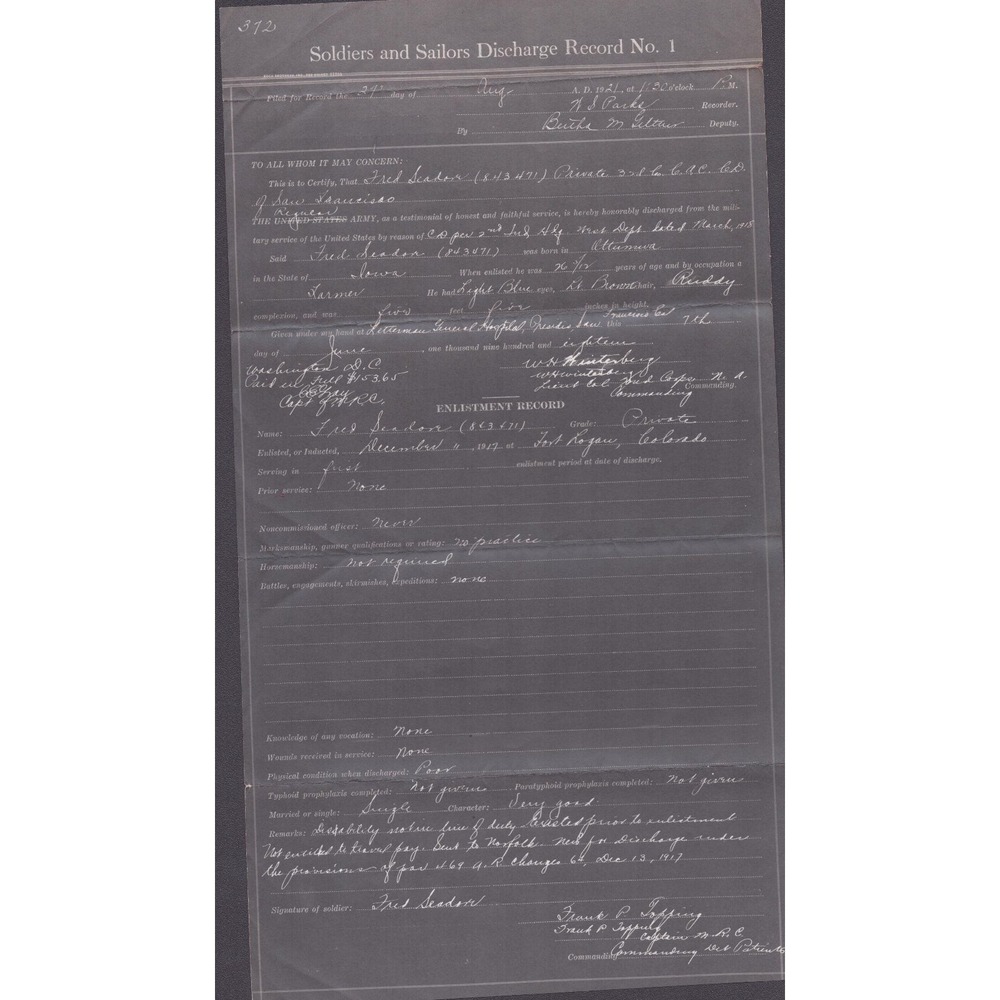 372
Soldiers and Sailors Discharge Record No. 1
Filed for Record the 29" day of Aug A. D. 1921, at 1:30 o'clock P. M.
W S Parks Recorder.
By Bertha M Deputy.
TO ALL WHOM IT MAY CONCERN:
This is to Certify, That Fred Seadore (843471) Private 3rd Co. C.A.C. C.D.
of San Francisco
Regular
THE UNITED STATES ARMY, as a testimonial of honest and faithful service, is hereby honorably discharged from the mili-
tary service of the United States by reason of C D per 2nd Ind. Hdq. West Dept. dated March, 1918
Said Fred Seadore (843471) was born in Ottumwa
in the State of Iowa When enlisted he was 26 /12 years of age and by occupation a
Farmer He had Light Blue eyes, Lt Brown hair, Ruddy
complexion, and was five feet five inches in height.
Given under my hand at Letterman General Hospital, Presidio, San Francisco Cal this 7th
day of June, one thousand nine hundred and eighteen
Washington D.C. W H Winterberg
Paid in Full $153.65 W H Winterberg
Lieut Col Med Corps N. A.
Capt Q.M.R.C. Commanding Commanding.
ENLISTMENT RECORD
Name: Fred Seadore (843471) Grade: Private
Enlisted, or Inducted, December 11, 1917 at Fort Logan, Colorado
Serving in first enlistment period at date of discharge.
Prior service: None
Noncommissioned officer: Never
Marksmanship, gunner qualifications or rating: no practice
Horsemanship: Not required
Battles, engagements, skirmishes, expeditions: none
Knowledge of any vocation: None
Wounds received in service: None
Physical condition when discharged: Poor
Typhoid prophylaxis completed: Not given Paratyphoid prophylaxis completed: Not given
Married or single: Single Character: Very good
Remarks: Disability not in line of duty. Existed prior to enlistment
Not entitled to travel pay. Sent to Norfolk. Neb for Discharge under
the provisions of par 469 A.R. Changes 60, Dec 13, 1917
Signature of soldier: Fred Seadore
Frank P Topping
Frank P Topping
Captain M.R.C
Commanding Commanding Det Patients